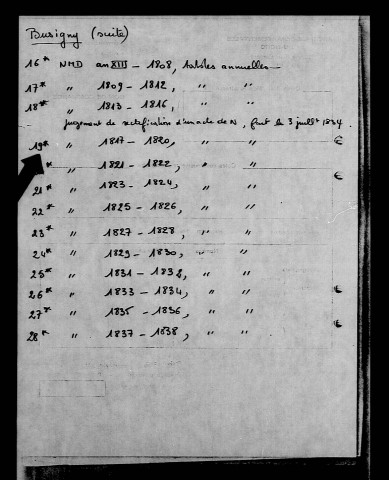 Busigny (suite)
16* NMD an XIII - 1808, tables annuelles
17* " 1809 - 1812, " "
18* " 1813 - 1816, " "
jugement de rectification d'un acte de N, fait le 3 juillt 1834
19* " 1817 - 1820, " " €
* " 1821 - 1822, " "
21* " 1823 - 1824, " " €
22* " 1825 - 1826, " "
23* " 1827 - 1828, " "
24* " 1829 - 1830, " "
25* " 1831 - 1832, " "
26* " 1833 - 1834, " " €
27* " 1835 - 1836, " "
28* " 1837 - 1838, " " €